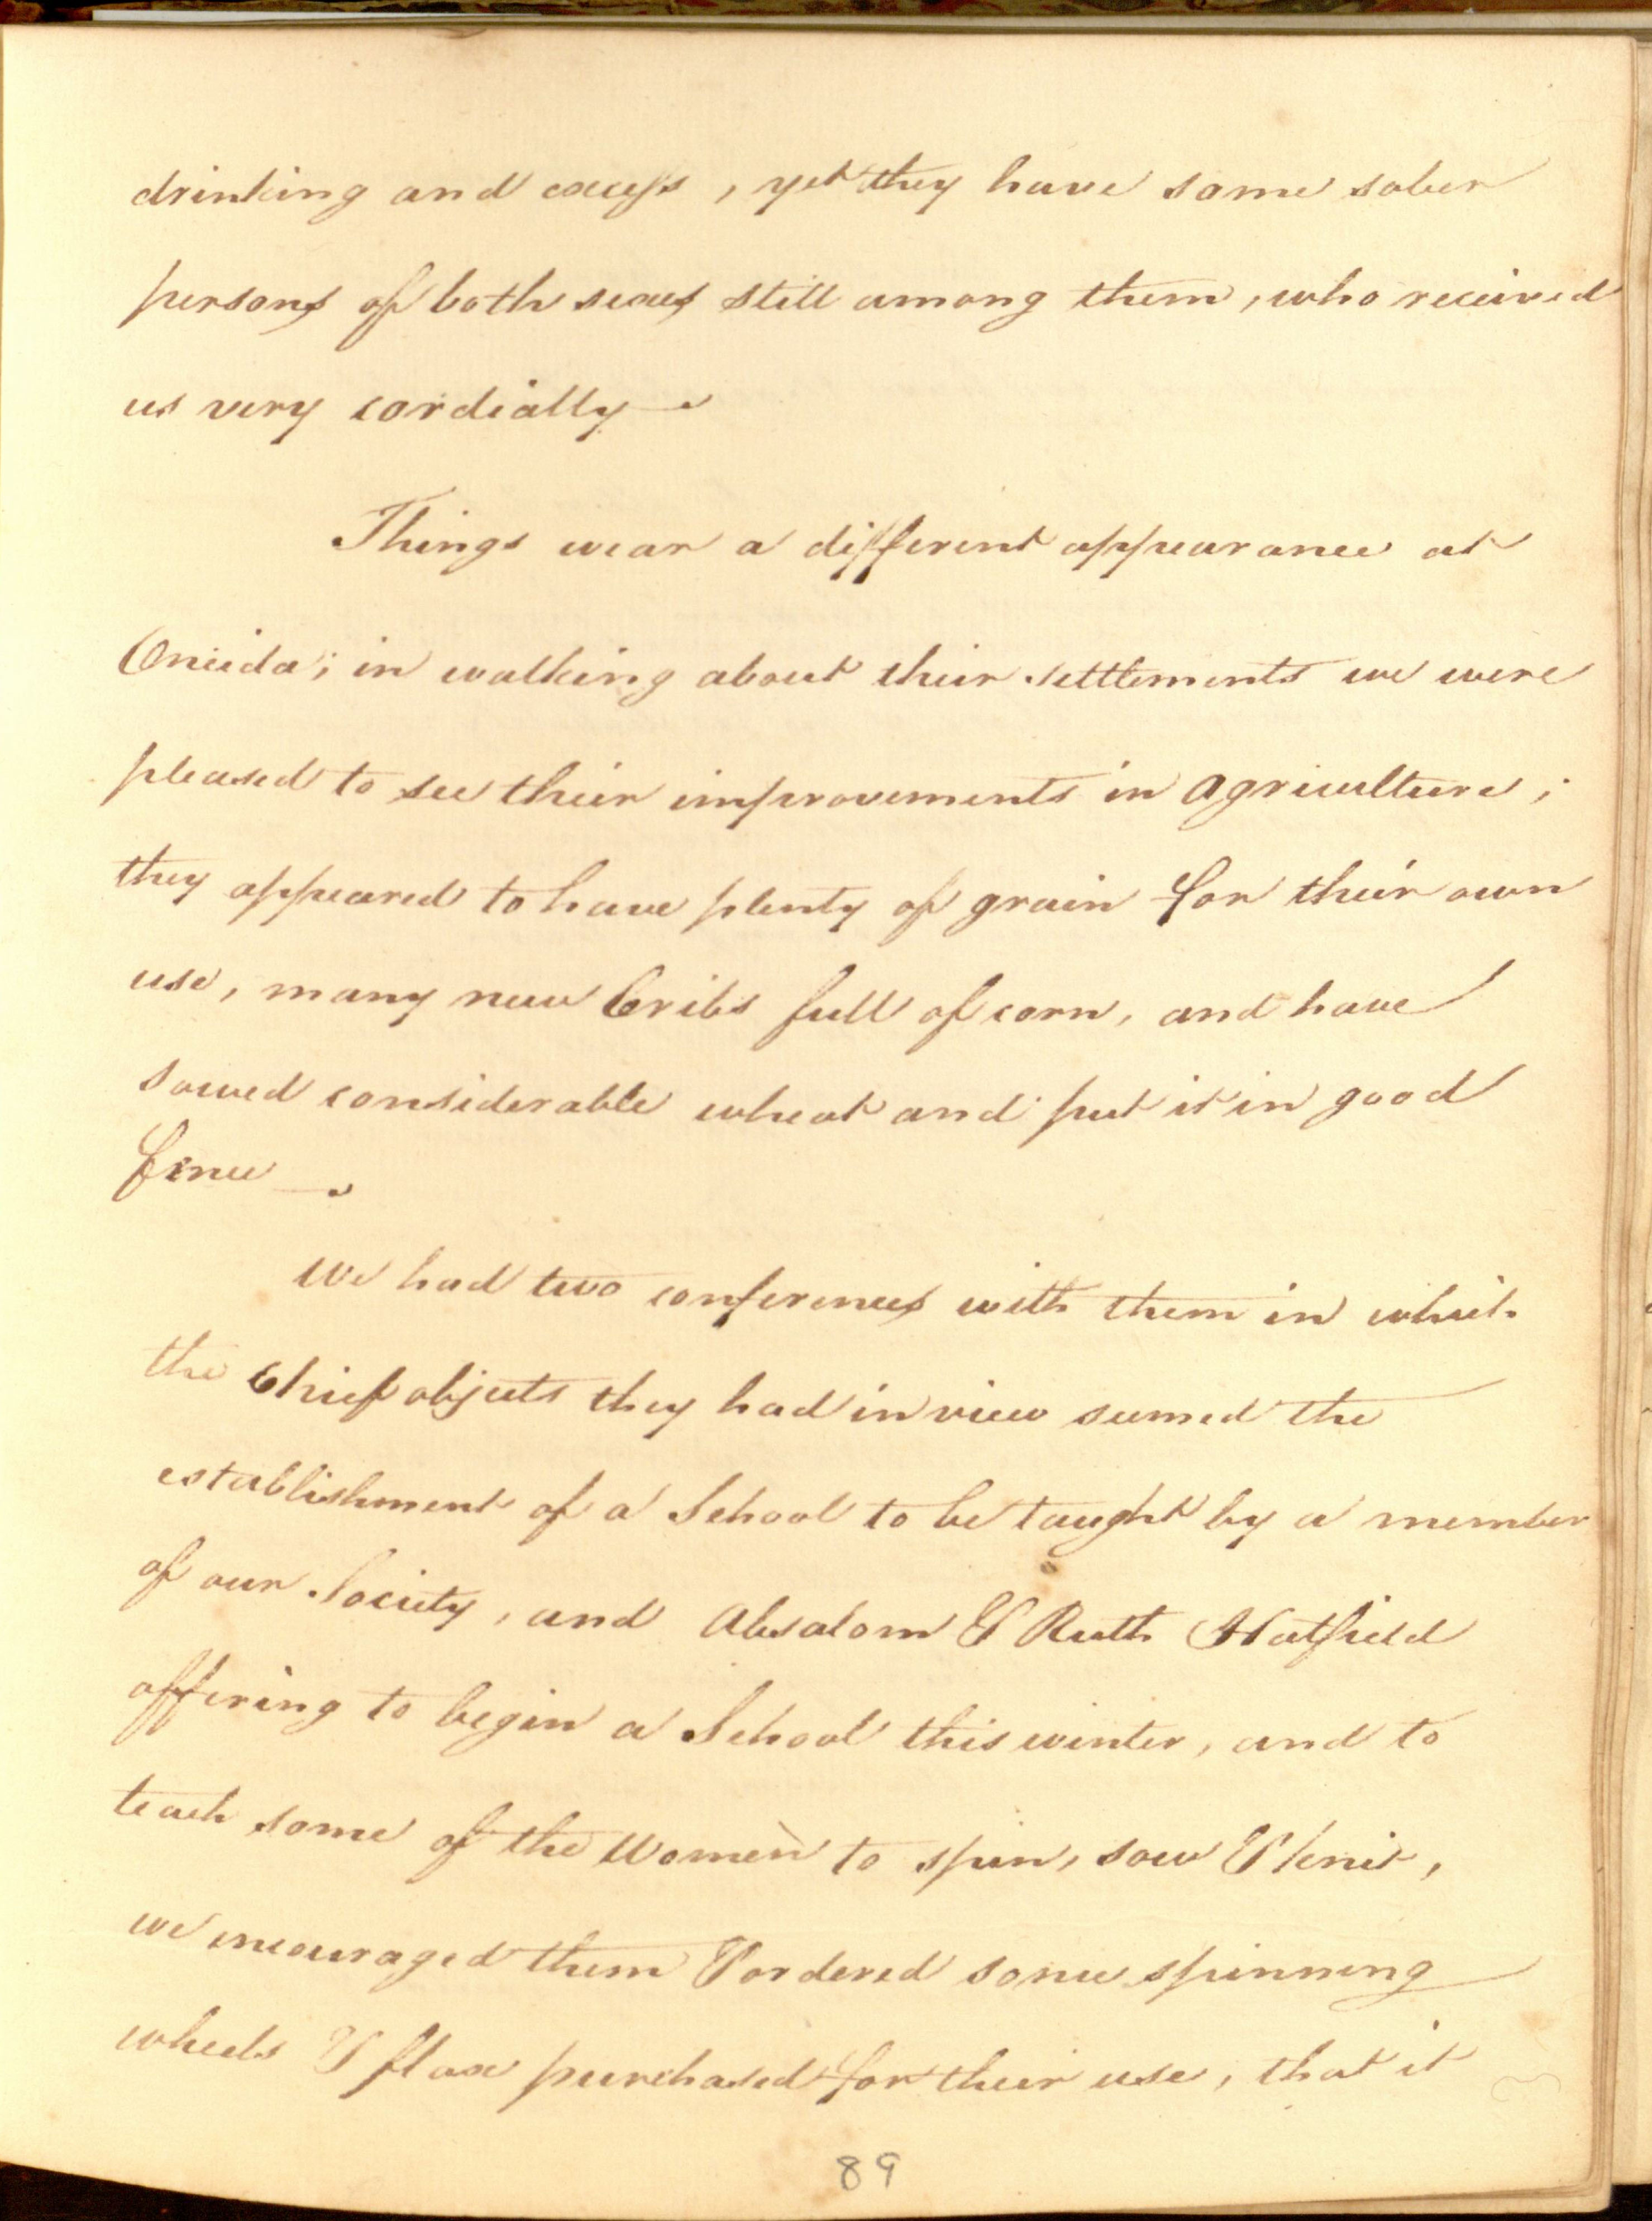 drinking and excess, yet they have some sober
persons of both sexes still among them, who received
us very cordially —
Things wear a different appearance at
Oneida; in walking about their settlements we were
pleased to see their improvements in Agriculture;
they appeared to have plenty of grain for their own
use, many new Cribs full of corn, and have
sowed considerable wheat and put it in good
fence —
We had two conferences with them in which
the Chief objects they had in view seemed the
establishment of a School to be taught by a member
of our Society, and Absalom & Ruth Hatfield
offering to begin a School this winter, and to
teach some of the Women to spin, sow & knit,
we encouraged them & ordered some spinning
wheels & flax purchased for their use, that it
89